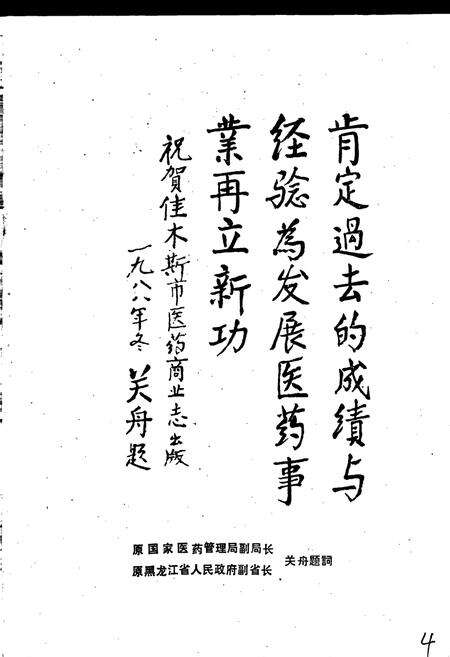 肯定過去的成績与
经验為发展医药事
業再立新功
祝賀佳木斯市医药商业志出版
一九八八年冬 关舟题
原国家医药管理局副局长
原黑龙江省人民政府副省长
关舟题詞
4